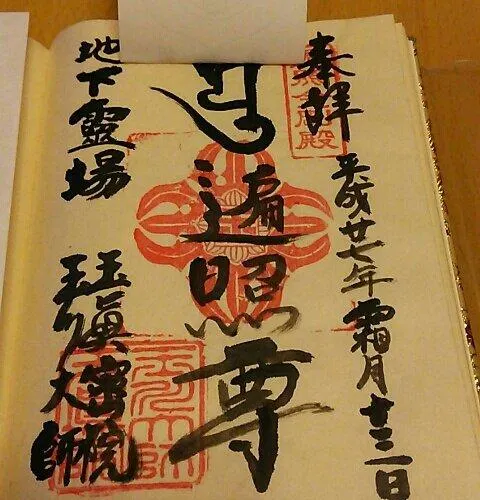 奉拜
平成廿七年霜月廿三日
遍照尊
地下靈場
玉眞密院
玉川大師